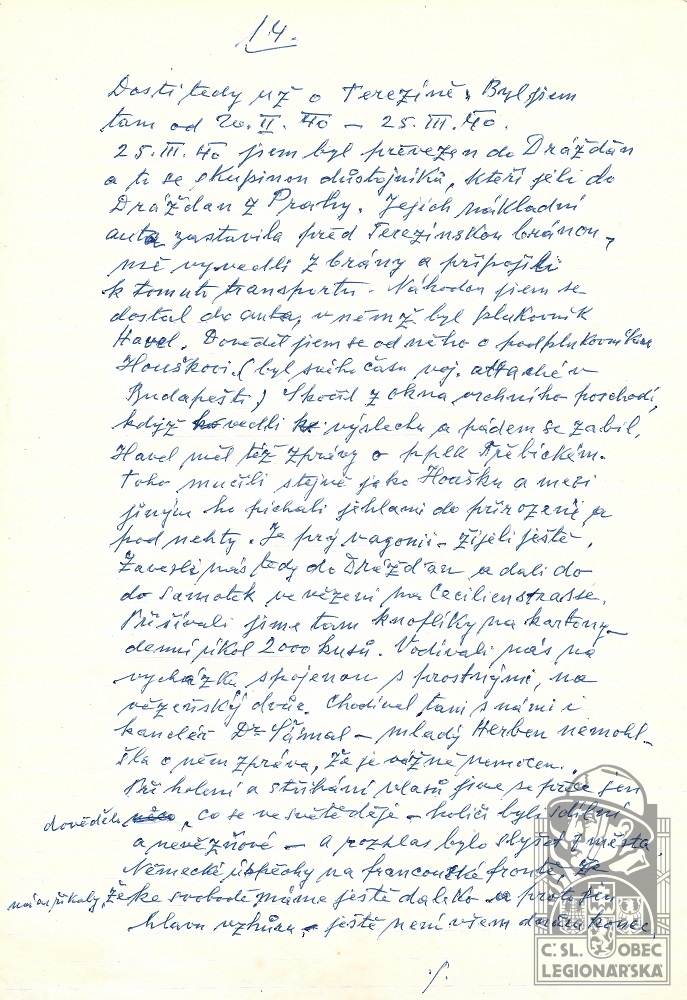 14.
Dosti tedy už o Terezíně. Byl jsem
tam od 20. II. 40 – 25. III. 40.
25. III. 40 jsem byl převezen do Drážďan
a to se skupinou důstojníků, kteří jeli do
Drážďan z Prahy. Jejich nákladní
auta zastavila před Terezínskou bránou,
mě vyvedli z brány a připojili
k tomuto transportu. Náhodou jsem se
dostal do auta, v němž byl plukovník
Havel. Dověděl jsem se od něho o podplukovníku
Houškovi (byl svého času voj. attaché v
Budapešti) Skočil z okna vrchního poschodí,
když ho vedli k výslechu a pádem se zabil.
Havel měl též zprávy o pplk Třebickém.
Toho mučili stejně jako Houšku a mezi
jiným ho píchali jehlami do přirození a
pod nehty. Je prý v agonii – žije-li ještě.
Zavezli nás tedy do Drážďan a dali do
do samotek ve vězení na Cecilienstrasse.
Přišívali jsme tam knoflíky na kartony –
denní úkol 2000 kusů. Vodívali nás na
vycházku spojenou s prostnými, na
vězeňský dvůr. Chodíval tam s námi i
kancléř Dr Šámal – mladý Herben nemohl –
šla o něm zpráva, že je vážně nemocen.
Při holení a stříhání vlasů jsme se přece jen
dověděli, co se ve světě děje – holiči byli sdílní
a nevězňové – a rozhlas bylo slyšet z města.
Německé úspěchy na francouzské frontě,
nám říkaly, že ke svobodě máme ještě daleko a proto jen
hlavu vzhůru, – ještě není všem dnům konec.
Č. SL. OBEC
LEGIONÁŘSKÁ